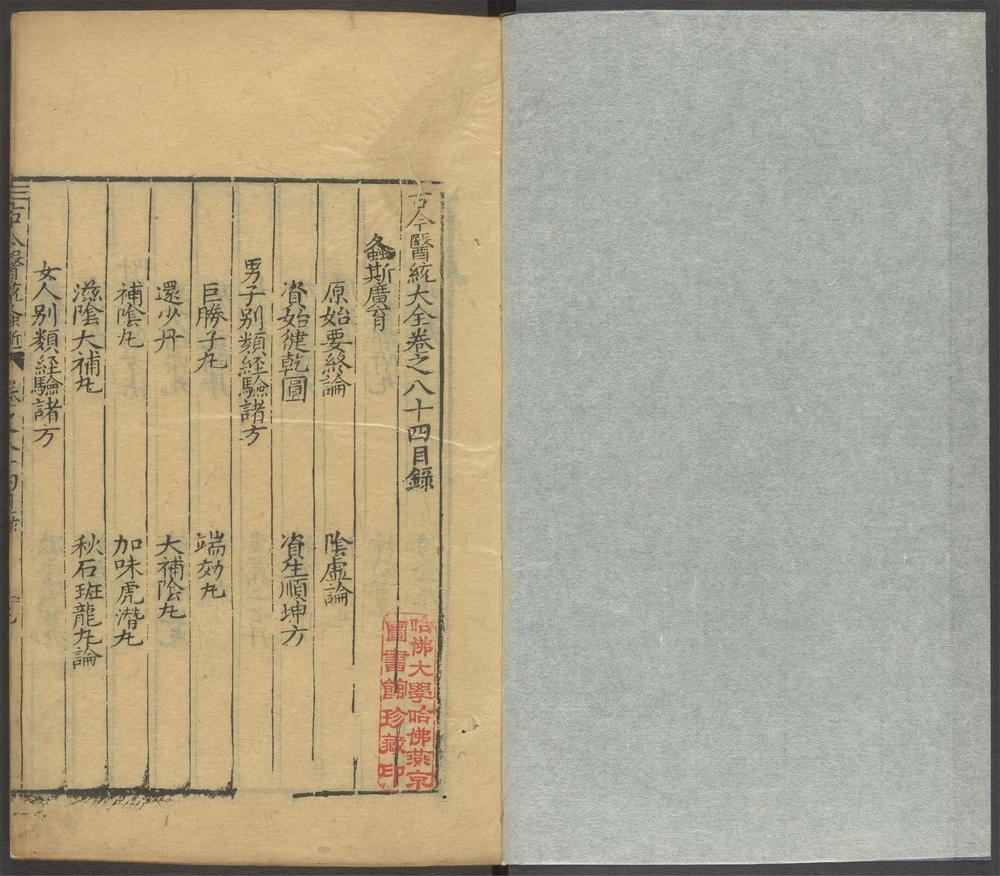 古今醫統大全卷之八十四目錄
螽斯廣育
原始要終論　陰虛論
資始健乾圓　資生順坤方
男子別類経驗諸方
巨勝子丸　端効丸
還少丹　大補陰丸
補陰丸　加味虎潛丸
滋陰大補丸　秋石班龍丸論
女人別類経驗諸方
古今醫統
哈佛大學哈佛燕京
圖書館珍藏印